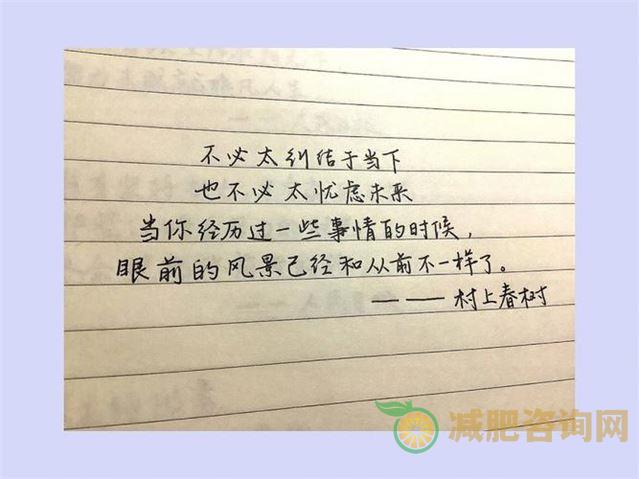 不必太纠结于当下
也不必太忧虑未来
当你经历过一些事情的时候，
眼前的风景已经和从前不一样了。
———村上春树
减肥咨询网